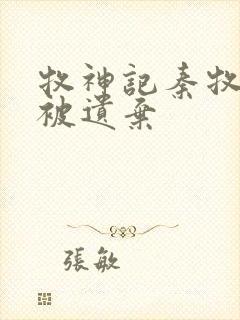 牧神記秦牧
被遺棄
張敏